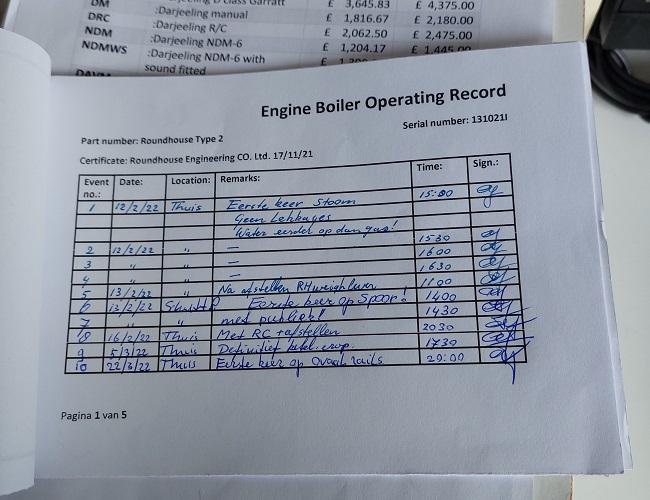 DM
:Darjeeling D class Garratt £ 3,645.83 £ 4,375.00
DRC :Darjeeling manual £ 1,816.67 £ 2,180.00
NDM :Darjeeling R/C £ 2,062.50 £ 2,475.00
NDMWS :Darjeeling NDM-6 £ 1,204.17 £ 1,445.00
:Darjeeling NDM-6 with £
sound fitted
Engine Boiler Operating Record
Part number: Roundhouse Type 2 Serial number: 131021I
Certificate: Roundhouse Engineering CO. Ltd. 17/11/21
Event no.: Date: Location: Remarks: Time: Sign.:
1 12/2/22 Thuis Eerste keer Stoom 15:00
Geen Lekkages
Water eerder op dan gas!
2 12/2/22 " — 1530
3 " " — 1600
4 " " — 1630
5 13/2/22 " Na afstellen RH 1100
6 13/2/22 Eerste keer op Spoor! 1400
7 " " met publiek! 1430
8 16/2/22 Thuis Met RC + afstellen 2030
9 5/3/22 Thuis Definitief 1730
10 22/3/22 Thuis Eerste keer op Ovaal rails 20:00
Pagina 1 van 5